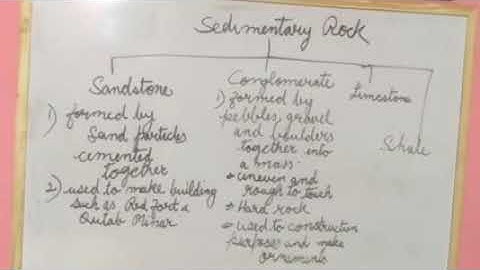 Sedimentary Rock
Sandstone
1) formed by
Sand particles
cemented
together
2) used to make building
such as Red Fort &
Qutab Minar
Conglomerate
1) formed by
pebbles, gravel
and boulders
together into
a mass.
→ uneven and
rough to touch
→ Hard rock
→ used to construction
purposes and make
ornaments
Limestone
Shale